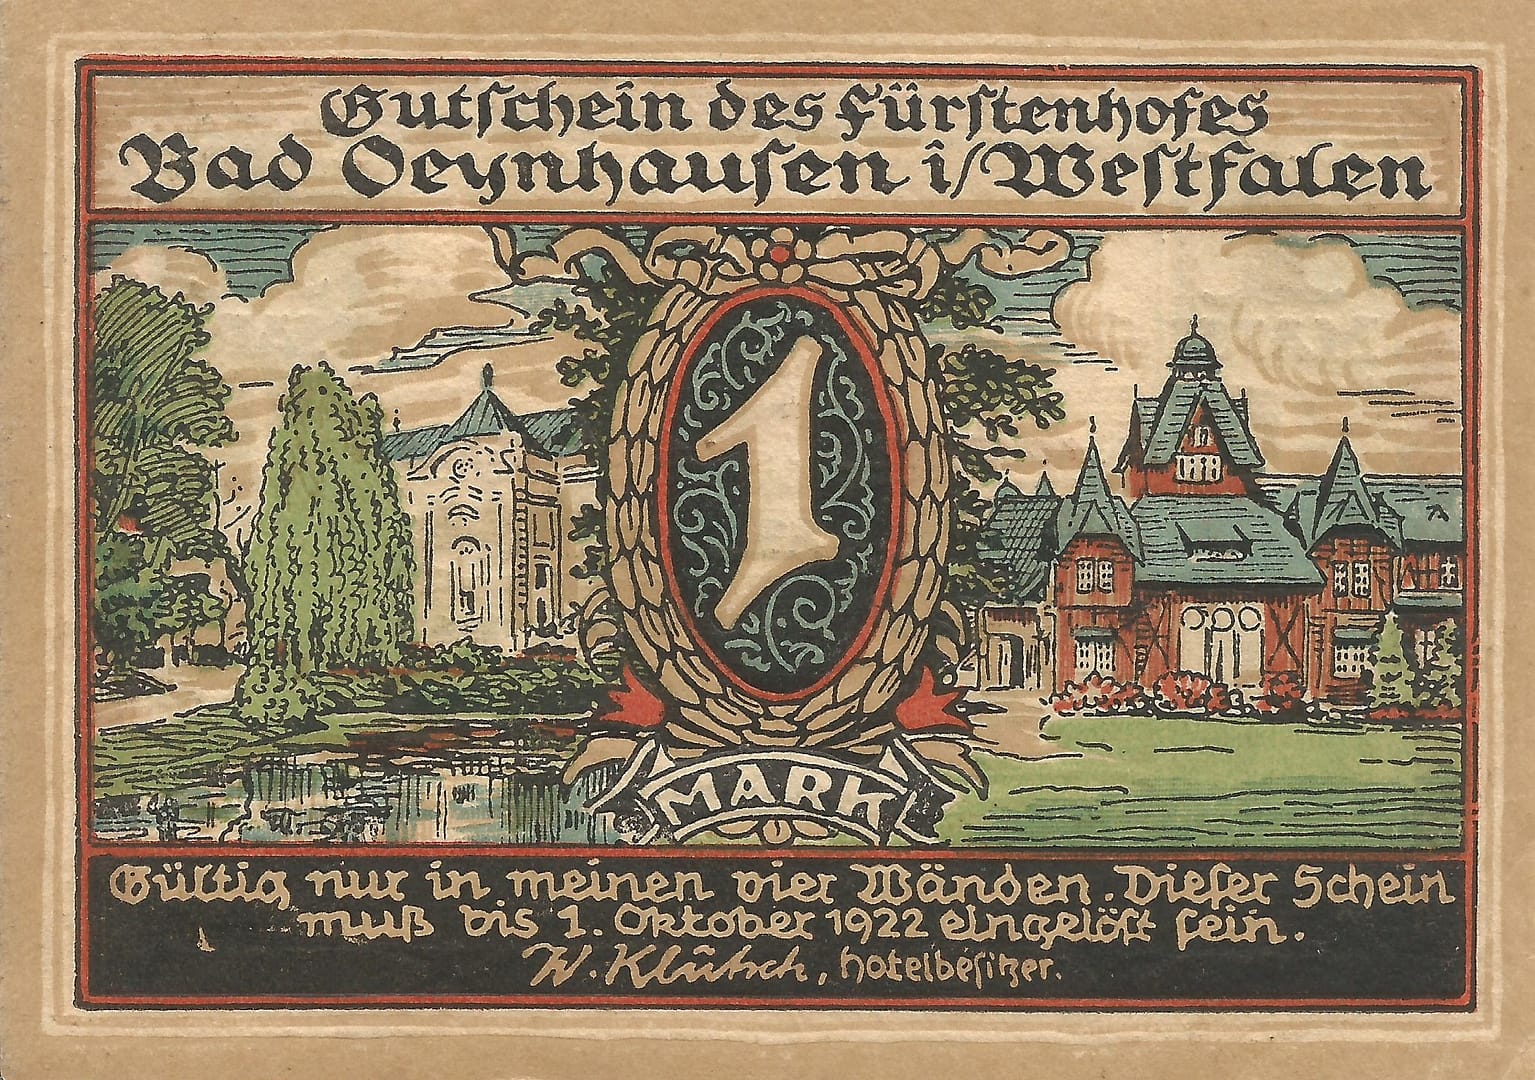 Gutschein des Fürstenhofes
Bad Oeynhausen i/Westfalen
1
MARK
Gültig nur in meinen vier Wänden. Dieser Schein
muß bis 1. Oktober 1922 eingelöst sein.
W. Klütsch, Hotelbesitzer.